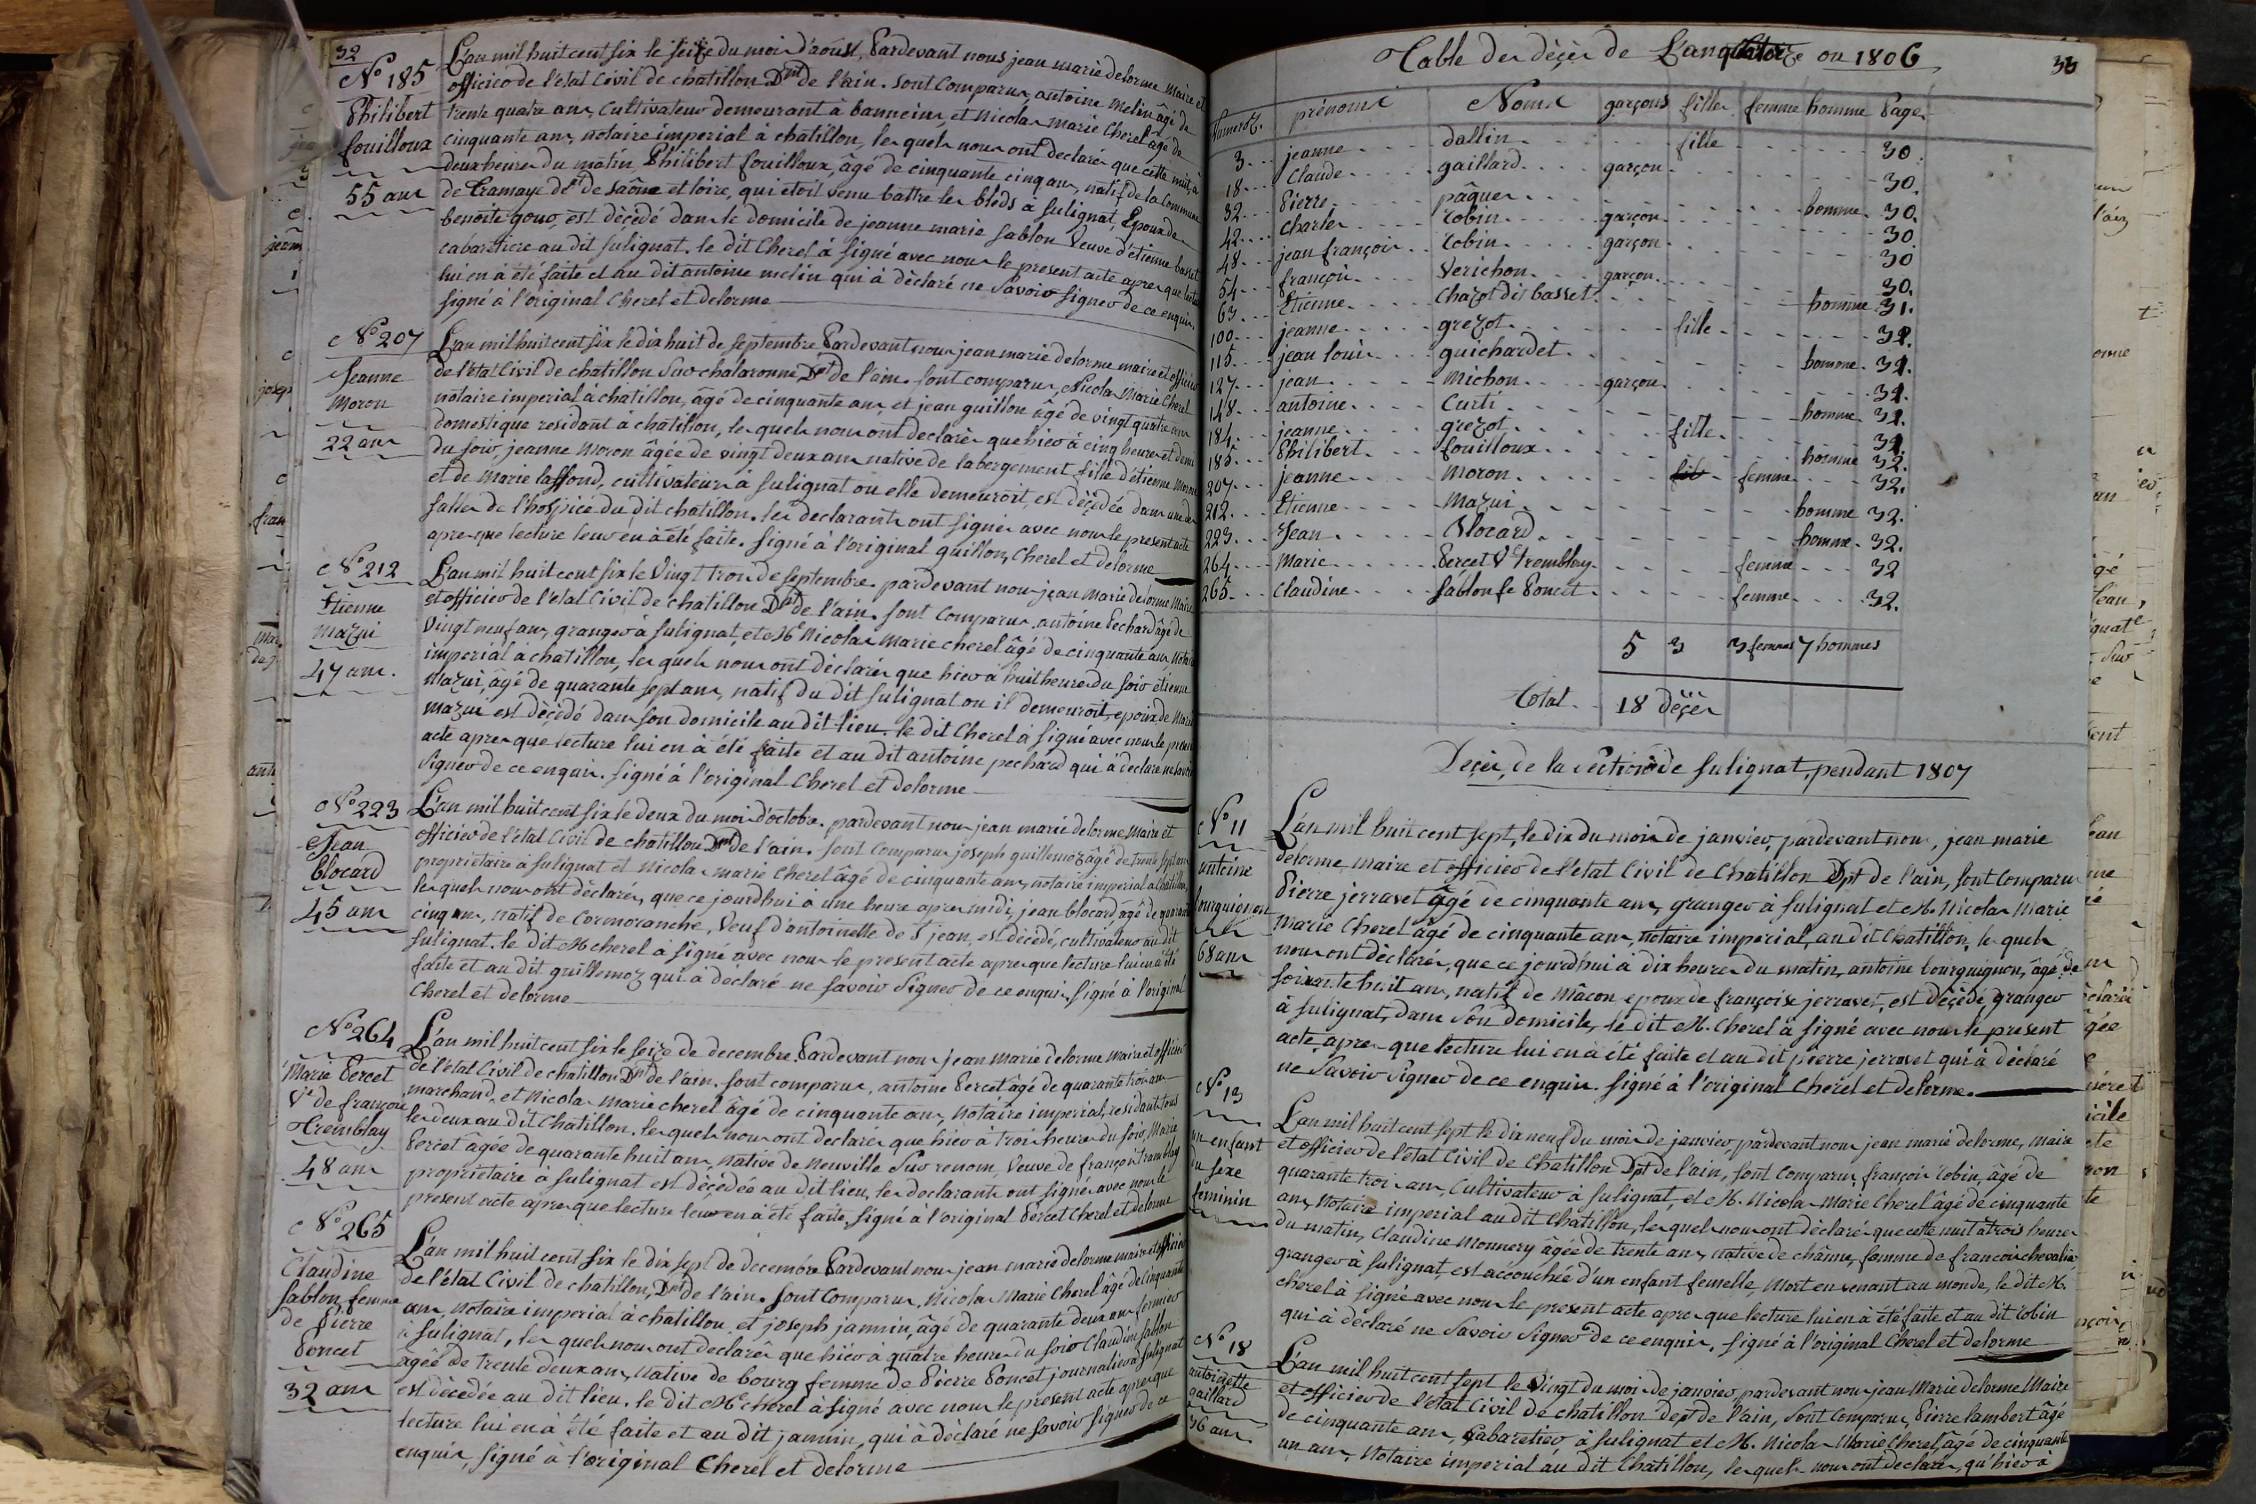 32
N° 185
Philibert
fouilloux
55 ans
L'an mil huit cent six le seize du mois d'aoust, Pardevant nous jean marie delorme maire et
officier de l'état Civil de chatillon Dpt de l'ain. sont Comparus, antoine melin âgé de
trente quatre ans, Cultivateur demeurant à banneins, et Nicolas marie Cherel âgé de
cinquante ans, notaire imperial à chatillon, les quels nous ont declarés que cette nuit, à
deux heures du matin, Philibert fouilloux, âgé de cinquante cinq ans, natif de la Commune
de Tramaye dpt de saône et loire, qui étoit venu battre les bleds à sulignat, Epoux de
benoite gouo, est dècèdé dans le domicile de jeanne marie sablon Veuve d'étienne basset
cabaretiere au dit sulignat. le dit Cherel à signé avec nous le present acte apres que lecture
lui en à été faite et au dit antoine melin qui à déclaré ne Savoir signer de ce enquis.
signé à l'original Cherel et delorme
N° 207
Jeanne
Moron
22 ans
L'an mil huit cent six le dix huit de septembre Pardevant nous jean marie delorme maire et officier
de l'état Civil de chatillon Sur chalaronne, Dpt de l'ain. sont comparus, Nicolas Marie Cherel
notaire imperial à chatillon, âgé de cinquante ans, et jean guillon âgé de vingt quatre ans
domestique residant à chatillon, les quels nous ont declarés que hier à cinq heures et demi
du soir, jeanne Moron âgée de vingt deux ans native de labergement, fille d'étienne Moron
et de Marie laffond, cultivateurs à sulignat ou elle demeuroit, est dècèdée dans une des
salles de l'hospice du dit chatillon. les declarants ont signés avec nous le present acte
apres que lecture leur en à été faite. Signé à l'original guillon, Cherel et delorme
N° 212
Etienne
Mazui
47 ans.
L'an mil huit cent six le Vingt trois de septembre. pardevant nous jean Marie delorme Maire
et officier de l'état Civil de chatillon Dpt de l'ain. sont Comparus, antoine Pechard âgé de
Vingt neuf ans, granger à sulignat, et Me Nicolas Marie cherel âgé de cinquante ans, Notaire
imperial à chatillon, les quels nous ont dèclarés que hier à huit heures du soir étienne
Mazui, âgé de quarante sept ans, natif du dit sulignat ou il demeuroit, epoux de Marie
mazui est dècèdé dans son domicile au dit lieu. le dit Cherel à signé avec nous le present
acte apres que lecture lui en à été faite et au dit antoine pechard qui à declaré ne savoir
signer de ce enquis. signé à l'original Cherel et delorme
N° 223
Jean
blocard
45 ans
L'an mil huit cent six le deux du mois d'octobre. pardevant nous jean marie delorme Maire et
officier de l'état Civil de chatillon Dpt de l'ain. sont Comparus joseph guillemoz âgé de trente sept ans
propriètaire à sulignat et Nicolas marie Cherel âgé de cinquante ans, notaire imperial à Chatillon,
les quels nous ont dèclarés, que ce jourdhui à une heure apres midi, jean blocard âgé de quarante
cinq ans, natif de Cormoranche, Veuf d'antoinette de St jean, est dècèdé, cultivateur au dit
sulignat. le dit M cherel à signé avec nous le present acte apres que lecture lui en à été
faite et au dit guillemoz qui à dèclaré ne savoir Signer de ce enquis. Signé à l'original
Cherel et delorme
N° 264
Marie Percet
Ve de françois
Tremblay
48 ans
L'an mil huit cent six le seize de decembre. Pardevant nous jean marie delorme maire et officier
de l'état Civil de chatillon Dpt de l'ain. sont comparus, antoine Percet âgé de quarante trois ans
marchand, et Nicolas marie cherel âgé de cinquante ans, Notaire imperial, residant tous
les deux au dit Chatillon. les quels nous ont declarés que hier à trois heures du soir, Marie
Percet âgée de quarante huit ans, native de Neuville Sur renom, Veuve de françois tremblay
propriètaire à sulignat est dècèdée au dit lieu, les declarants ont signés avec nous le
present acte apres que lecture leur en à été faite, signé à l'original Percet Cherel et delorme
N° 265
Claudine
Sablon femme
de Pierre
Poncet
32 ans
L'an mil huit cent six le dix sept de decembre Pardevant nous jean marie delorme maire et officier
de l'état Civil de chatillon, Dpt de l'ain. sont Comparus, Nicolas Marie Cherel âgé de cinquante
ans, Notaire imperial à chatillon, et joseph jannin, âgé de quarante deux ans fermier
à sulignat, les quels nous ont declarés que hier à quatre heures du soir Claudine Sablon
âgée de trente deux ans, native de bourg femme de Pierre Poncet journalier à sulignat
est dècèdée au dit lieu. le dit Me cherel à signé avec nous le present acte apres que
lecture lui en à été faite et au dit jannin, qui à dèclaré ne savoir signer de ce
enquis, signé à l'original Cherel et delorme
Table des dèçès de L'an quatorze ou 1806
33
Numeros. prénoms Noms garçons filles femmes hommes Pages
3 jeanne dallin fille 30.
18 Claude gaillard garçon 30.
32 Pierre pâques homme 30.
42 charles robin garçon 30
48 jean françois robin garçon 30
54 françois Verichon garçon 30.
63 Etienne Chazot dit basset homme 31.
100 jeanne grezot fille 31.
115 jean louis guichardet homme 31.
127 jean Michon garçon 31.
148 antoine Curti homme 31.
184 jeanne grezot fille 31.
185 Philibert fouilloux homme 32.
207 jeanne Moron femme 32.
212 Etienne Mazui homme 32.
223 Jean Blocard homme 32.
264 Marie Percet Ve tremblay femme 32
265 Claudine sablon fe Poncet femme 32.
5 3 3 femmes 7 hommes
Total 18 dèçès
Deçès, de la Section de Sulignat, pendant 1807
N° 11
antoine
bourguignon
68 ans
L'an mil huit cent sept, le dix du mois de janvier, pardevant nous, jean marie
delorme, maire et officier de l'état Civil de Chatillon Dpt de l'ain, sont Comparus
Pierre jerravet âgé de cinquante ans, granger à sulignat et M. Nicolas Marie
Marie Cherel âgé de cinquante ans, Notaire imperial, au dit Chatillon, les quels
nous ont dèclarés, que ce jourdhui à dix heures du matin, antoine bourguignon, âgé de
soixante huit ans, natif de Mâcon epoux de françoise jerravet, est dèçèdé, granger
à sulignat, dans Son domicile, le dit M. Cherel à signé avec nous le present
acte, apres que lecture lui en à été faite et au dit pierre jerravet qui à dèclaré
ne Savoir Signer de ce enquis. signé à l'original Cherel et delorme.
N° 13
un enfant
du sexe
feminin
L'an mil huit cent sept le dix neuf du mois de janvier, pardevant nous jean marie delorme, maire
et officier de l'état Civil de Chatillon Dpt de l'ain, sont Comparus, françois robin, âgé de
quarante trois ans, Cultivateur à sulignat, et M. Nicolas Marie Cherel âgé de cinquante
ans, Notaire imperial au dit Chatillon, les quels nous ont dèclarés que cette nuit à trois heures
du matin, Claudine Monnery âgée de trente ans, native de chânes, femme de francois chevalier
granger à sulignat, est accouchée d'un enfant femelle, Mort en venant au monde, le dit M.
cherel à signé avec nous le present acte apres que lecture lui en à été faite et au dit robin
qui à dèclaré ne Savoir Signer de ce enquis, signé à l'original Cherel et delorme
N° 18
antoinette
gaillard
36 ans
L'an mil huit cent sept le Vingt du mois de janvier, pardevant nous jean Marie delorme Maire
et officier de l'état Civil de chatillon dept de l'ain, sont Comparus Pierre lambert âgé
de cinquante ans, Cabaretier, à sulignat et M. Nicolas Marie Cherel, âgé de cinquante
un ans, Notaire imperial au dit Chatillon, les quels nous ont declarés, qu'hier à